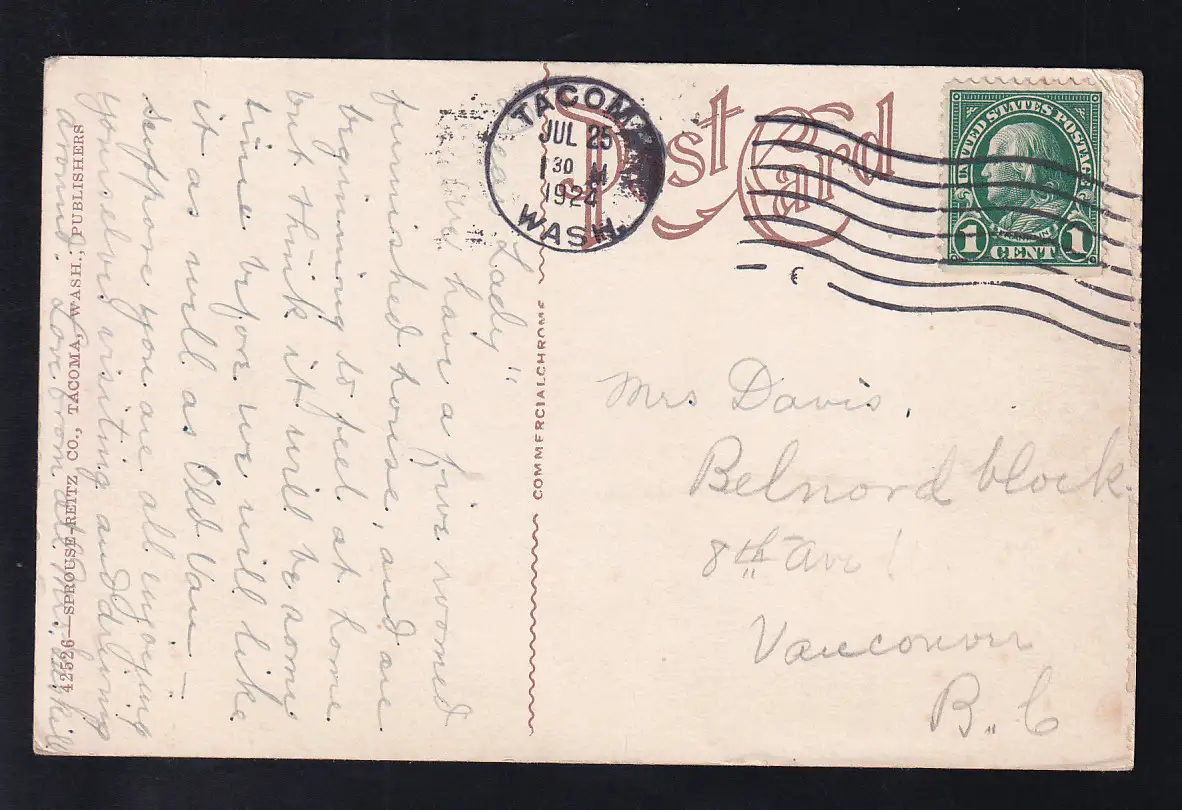 Post Card
TACOMA
JUL 25
1 30 M
192
WASH.
UNITED STATES POSTAGE
FRANKLIN
1 CENT 1
COMMERCIALCHROME
42526—SPROUSE-REITZ CO., TACOMA, WASH., PUBLISHERS
Lady"
have a five roomed
furnished house, and are
beginning to feel at home
but think it will be some
time before we will like
it as well as Old Van—
suppose you are all enjoying
yourselves visiting and driving
around. Love from all Mrs.
Mrs Davis.
Belnord block.
8th Ave
Vancouver
B.C